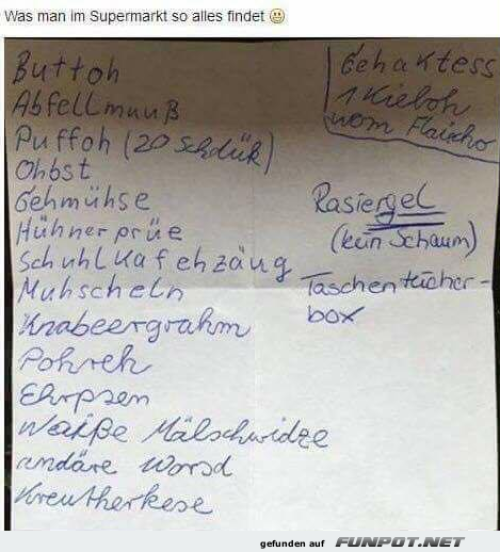 Was man im Supermarkt so alles findet 😀
Buttoh
Abfellmuuß
Puffoh (20 schdük)
Ohbst
Gehmühse
Hühnerprüe
Schuhlkafehzäug
Muhscheln
Knabeergrahm
Pohreh
Ehrpsen
Waiße Mälschwidze
andäre Worsd
Kreutherkese
Gehaktess
1 Kieloh
vom Flaischo
Rasiergel
(kein Schaum)
Taschentücher-
box
gefunden auf FUNPOT.NET